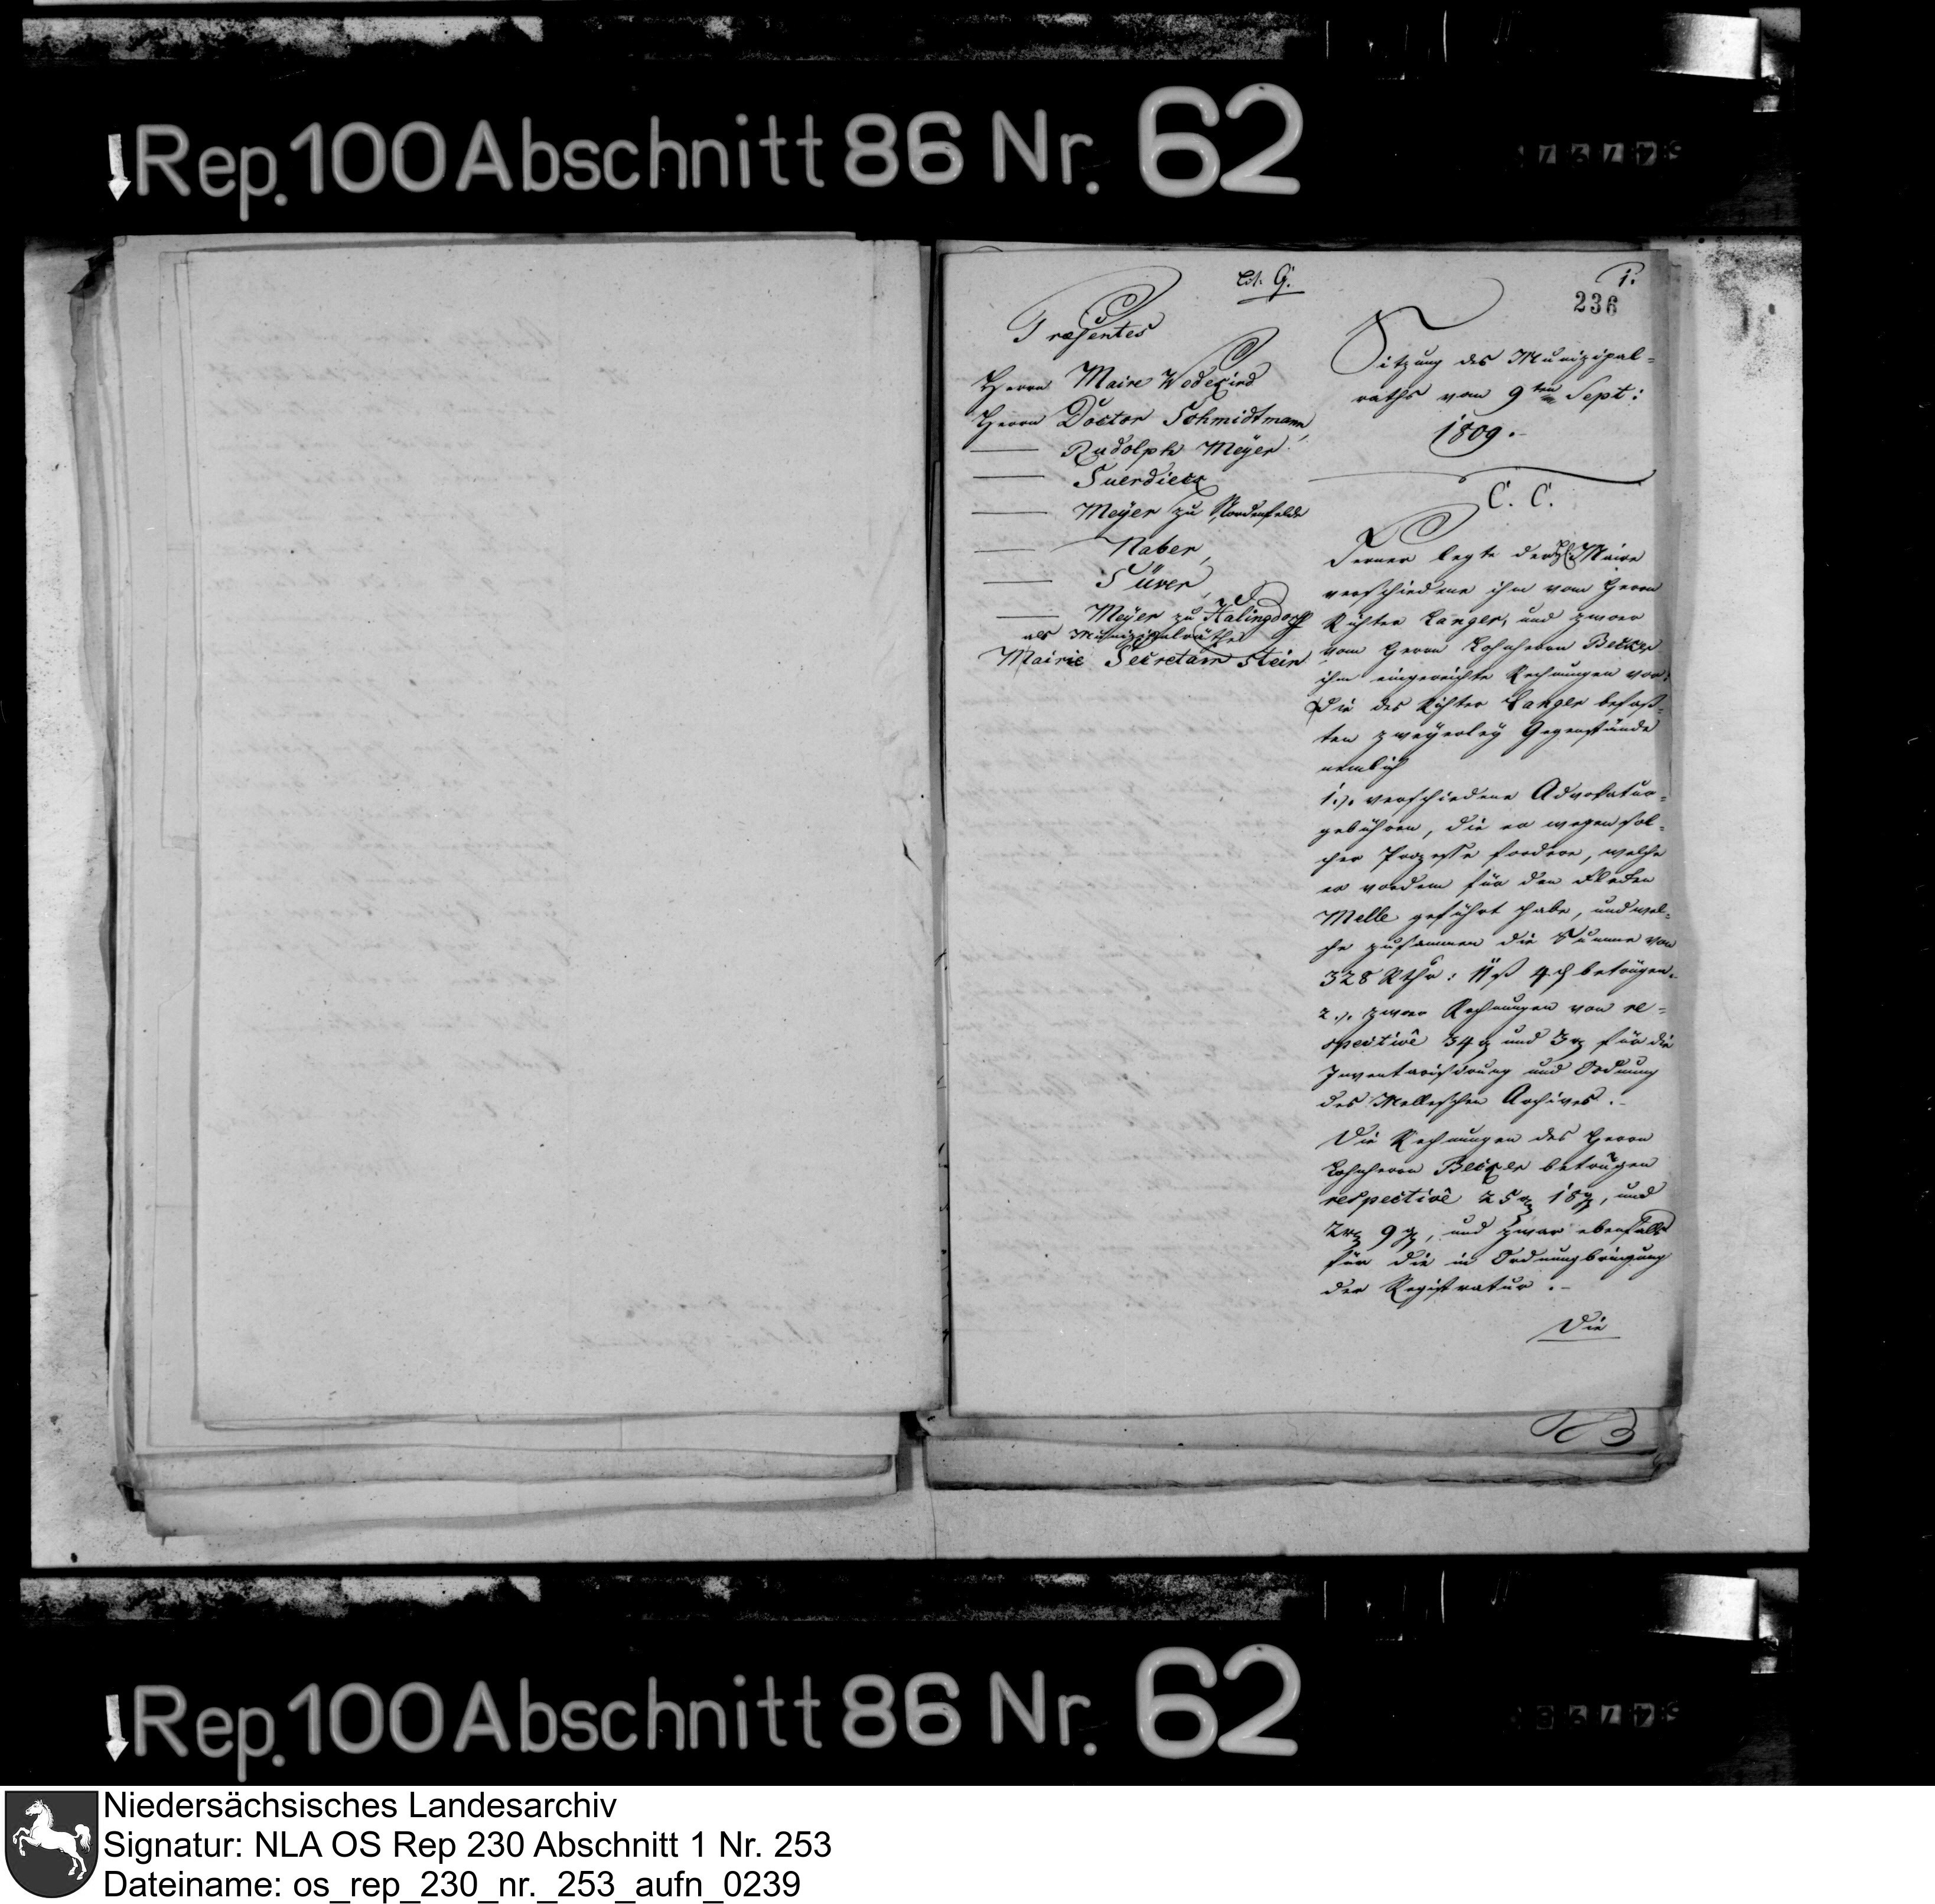 Rep. 100 Abschnitt 86 Nr. 62
Lit. G.
1.
236
Præsentes
Herrn Maire Wedekind
Herrn Doctor Schmidtmann,
Rudolph Meÿer
Suerdieck
Meÿer zu Nordenfelde
Naber,
Süver,
Meÿer zu Halingdorff
als Munizipalräthe
Mairie Secretair Stein
Sitzung des Munizipal=
raths vom 9ten Sept:
1809.-
C. C.
Ferner legte der H. Maire
verschiedene ihm vom Herrn
Richter Langer, und zween
vom Herrn Lohnherrn Becker
ihm eingereichte Rechnungen vor.
Die des Richter Langer befaß=
ten zweÿerleÿ Gegenstände
nemlich
1.). verschiedene Advokatur=
gebühren, die er wegen sol=
cher Prozesse fordere, welche
er vordem für den Flecken
Melle geführt habe, und wel=
che zusammen die Summe von
328 Rthr: 11 ß 4 d betrügen.
2.). zween Rechnungen von re=
spective 34 rt und 3 rt für die
Inventarisirung und Ordnung
des Melleschen Archives.-
Die Rechnungen des Herrn
Lohnherrn Becker betrügen
respective 25 rt 18 gr, und
2 rt 9 gr, und zwar ebenfalls
für die in Ordnungbringung
der Registratur.-
Die
Rep. 100 Abschnitt 86 Nr. 62
Niedersächsisches Landesarchiv
Signatur: NLA OS Rep 230 Abschnitt 1 Nr. 253
Dateiname: os_rep_230_nr._253_aufn_0239